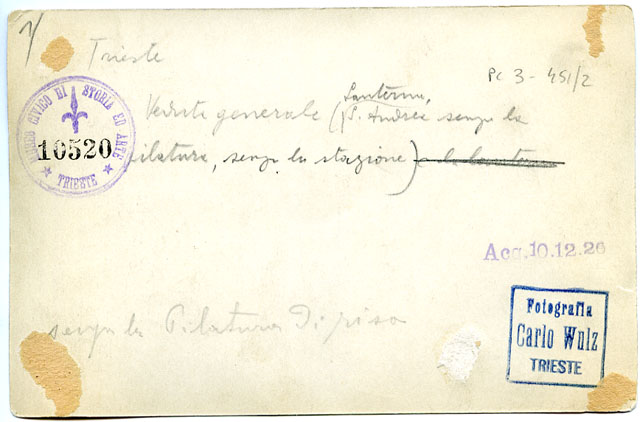 1/
Trieste
PC 3 - 451/2
CIVICO DI STORIA ED ARTE
10520
TRIESTE
Lanterna,
Veduta generale (S. Andrea senza la
pilatura, senza la stazione)
Acq. 10.12.26
senza la Pilatura Di riso
Fotografia
Carlo Wulz
TRIESTE